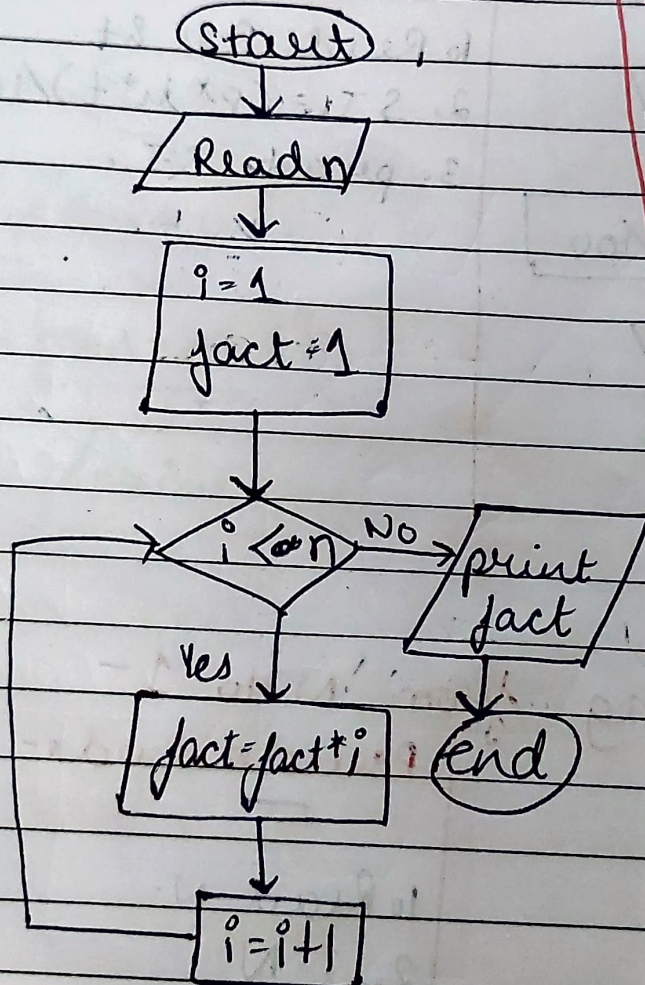 Start
Read n
i = 1
fact = 1
i <= n
No
print
fact
Yes
fact=fact*i
end
i=i+1